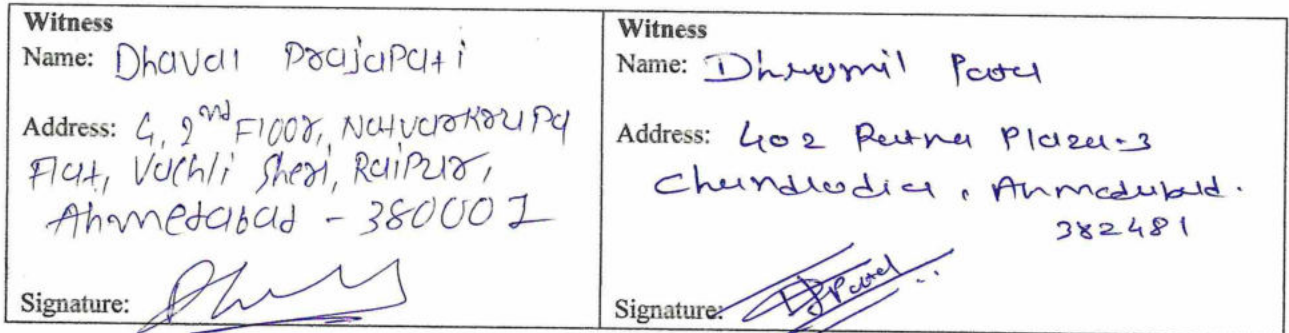 Witness
Name: Dhaval Prajapati
Address: 4, 2nd Floor, Natvarkrupa
Flat, Vachli Sheri, Raipur,
Ahmedabad - 380001
Signature:
Witness
Name: Dhrumil Patel
Address: 402 Ratna Plaza-3
Chandlodia, Ahmedabad.
382481
Signature: DJPatel